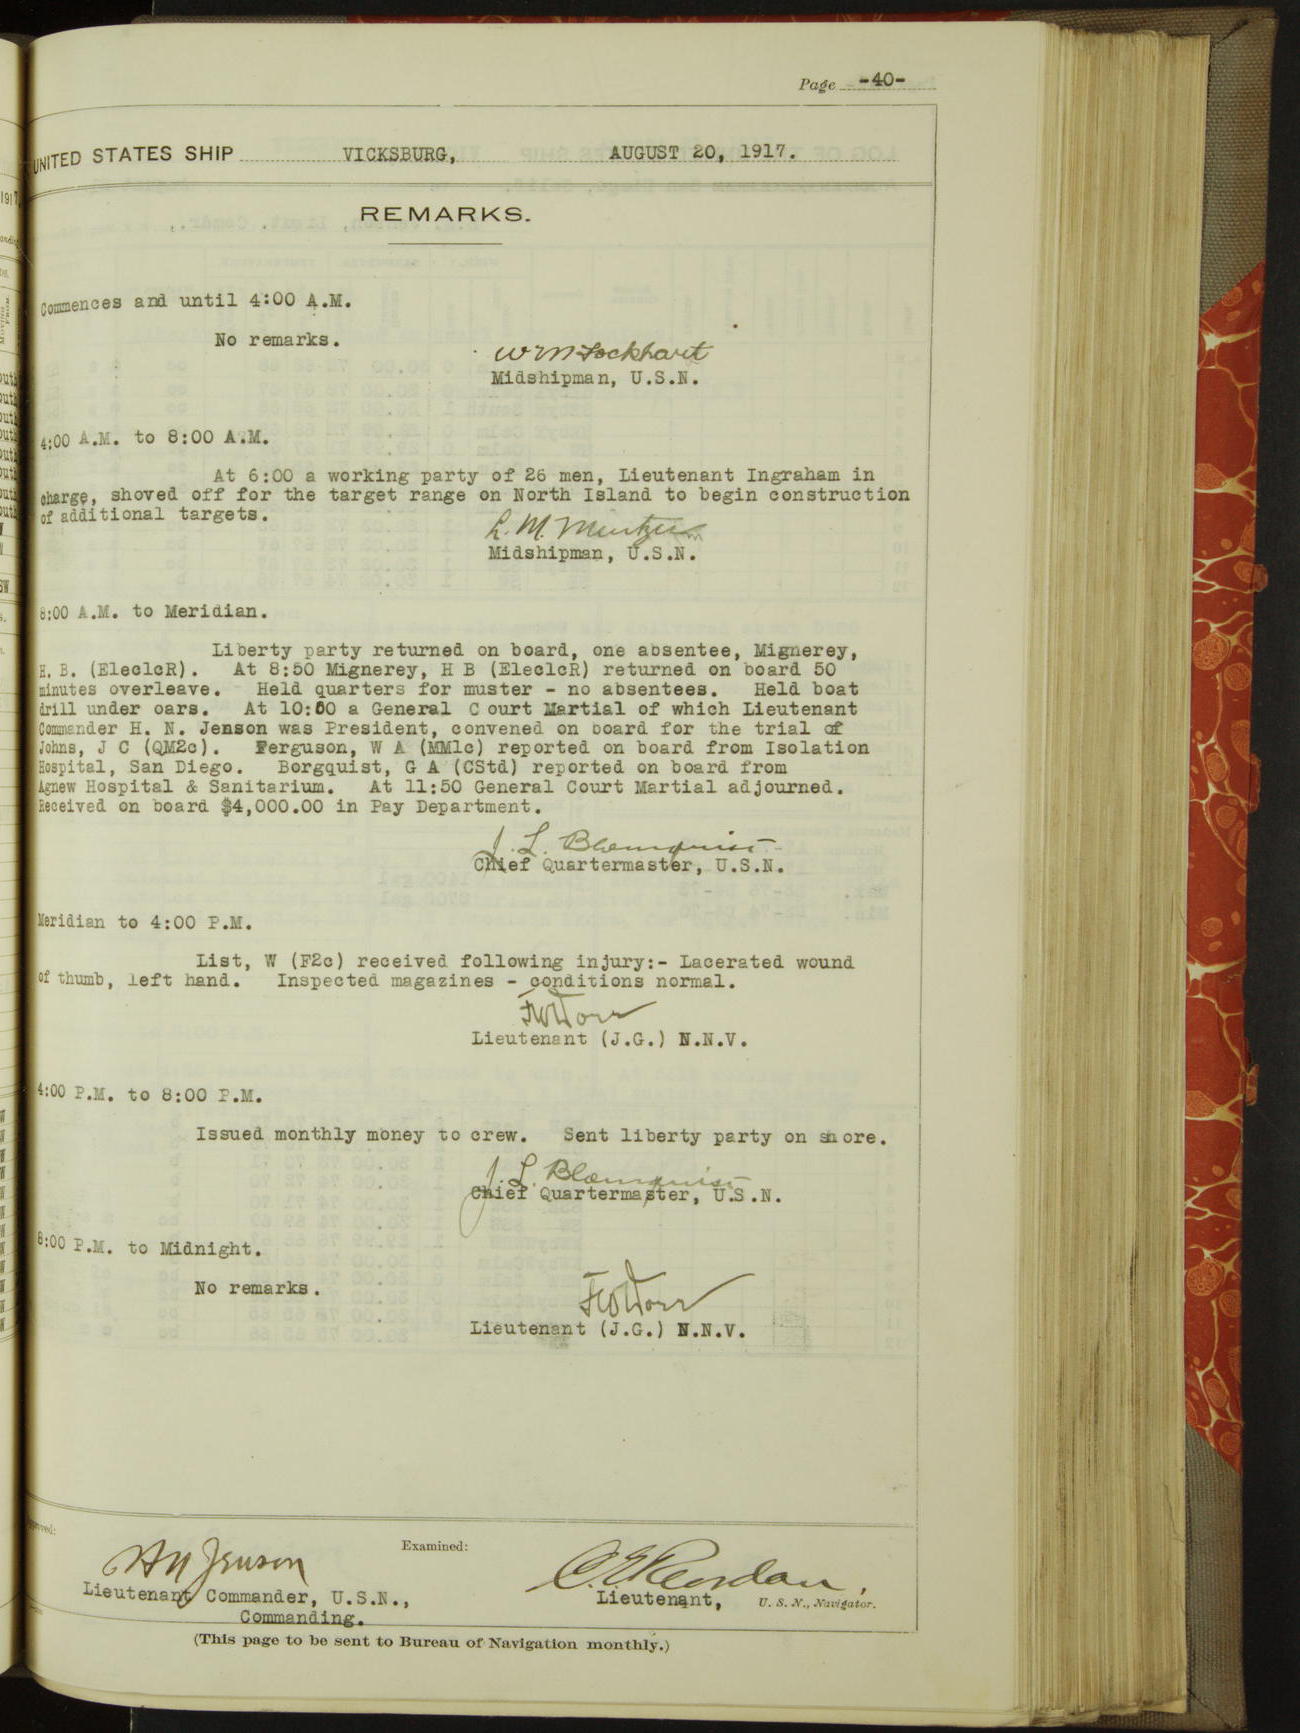 Page -40-
UNITED STATES SHIP VICKSBURG, AUGUST 20, 1917.
REMARKS.
Commences and until 4:00 A.M.
No remarks.
W M Lockhart
Midshipman, U.S.N.
4:00 A.M. to 8:00 A.M.
At 6:00 a working party of 26 men, Lieutenant Ingraham in
charge, shoved off for the target range on North Island to begin construction
of additional targets.
L. M.
Midshipman, U.S.N.
8:00 A.M. to Meridian.
Liberty party returned on board, one absentee, Mignerey,
H. B. (Elec1cR). At 8:50 Mignerey, H B (Elec1cR) returned on board 50
minutes overleave. Held quarters for muster - no absentees. Held boat
drill under oars. At 10:00 a General C ourt Martial of which Lieutenant
Commander H. N. Jenson was President, convened on board for the trial of
Johns, J C (QM2c). Ferguson, W A (MM1c) reported on board from Isolation
Hospital, San Diego. Borgquist, G A (CStd) reported on board from
Agnew Hospital & Sanitarium. At 11:50 General Court Martial adjourned.
Received on board $4,000.00 in Pay Department.
J. L. Blomquist
Chief Quartermaster, U.S.N.
Meridian to 4:00 P.M.
List, W (F2c) received following injury:- Lacerated wound
of thumb, left hand. Inspected magazines - conditions normal.
Lieutenant (J.G.) N.N.V.
4:00 P.M. to 8:00 P.M.
Issued monthly money to crew. Sent liberty party on shore.
J. L. Blomquist
Chief Quartermaster, U.S.N.
8:00 P.M. to Midnight.
No remarks.
Lieutenant (J.G.) N.N.V.
Approved:
Examined:
H N Jenson
C. E. Reordan,
Lieutenant Commander, U.S.N.,
Commanding.
Lieutenant, U. S. N., Navigator.
(This page to be sent to Bureau of Navigation monthly.)